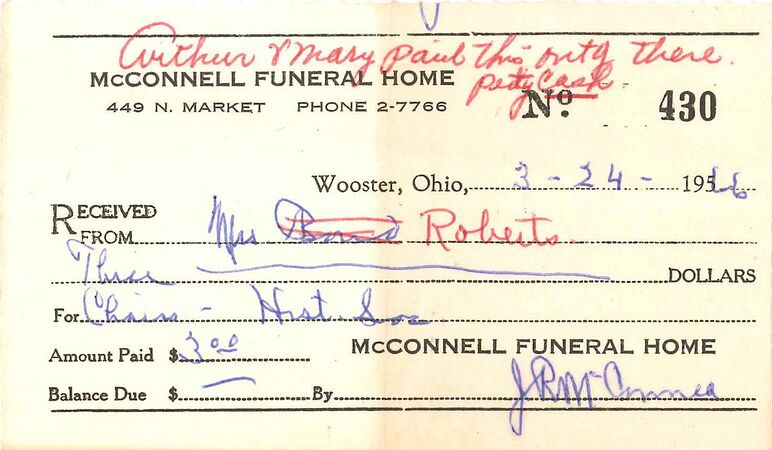 Arthur & Mary paid this out of there.
petty cash
McCONNELL FUNERAL HOME
449 N. MARKET PHONE 2-7766
No. 430
Wooster, Ohio, 3-24- 1956
RECEIVED FROM Mrs Roberts.
Three DOLLARS
For Chairs - Hist. Soc
Amount Paid $ 3.00
McCONNELL FUNERAL HOME
Balance Due $ — By J R McConnell